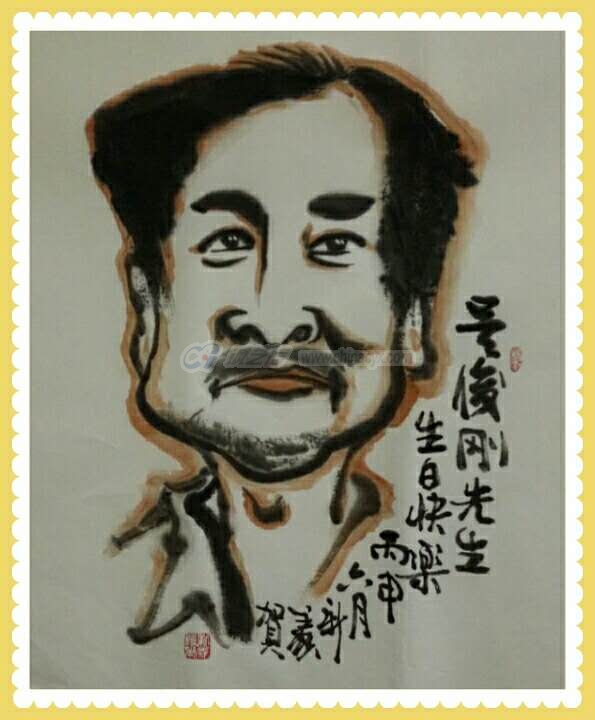 吴俊刚先生
生日快樂
丙申
六月
新義賀
www.chinesyj.com